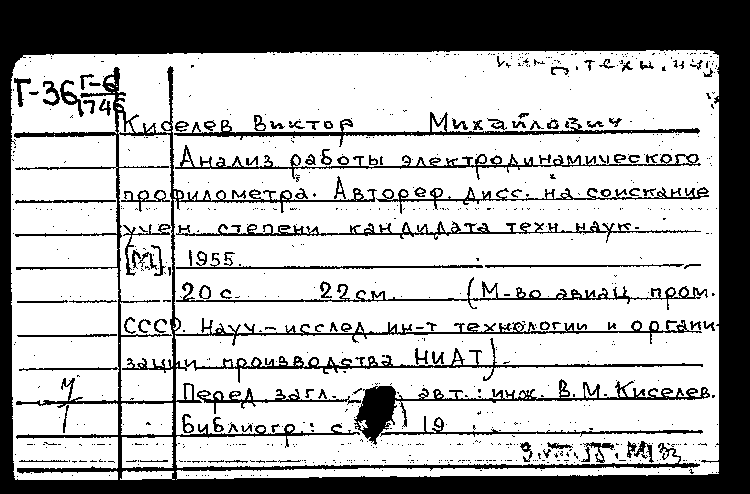 канд. техн. наук
Г-36 Г-6
1746
Киселев, Виктор Михайлович
Анализ работы электродинамического
профилометра. Автореф. дисс. на соискание
учен. степени кандидата техн. наук.
[М.], 1955.
20 с. 22 см. (М-во авиац. пром.
СССР. Науч.-исслед. ин-т технологии и органи-
зации производства НИАТ).
Перед загл. авт.: инж. В. М. Киселев.
Библиогр.: с. 19